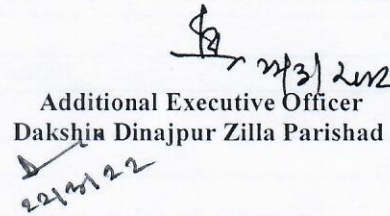 22/3/2022
Additional Executive Officer
Dakshin Dinajpur Zilla Parishad
22/3/22